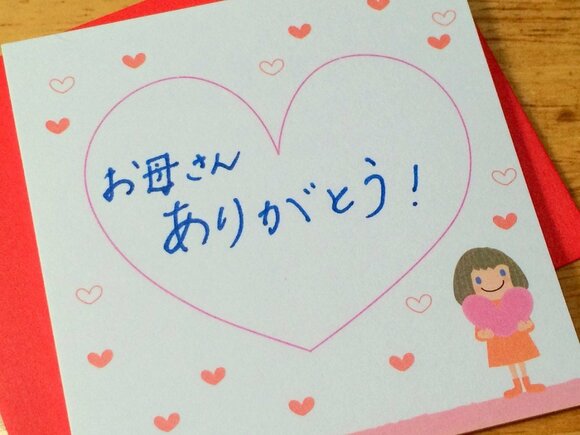 お母さん
ありがとう！